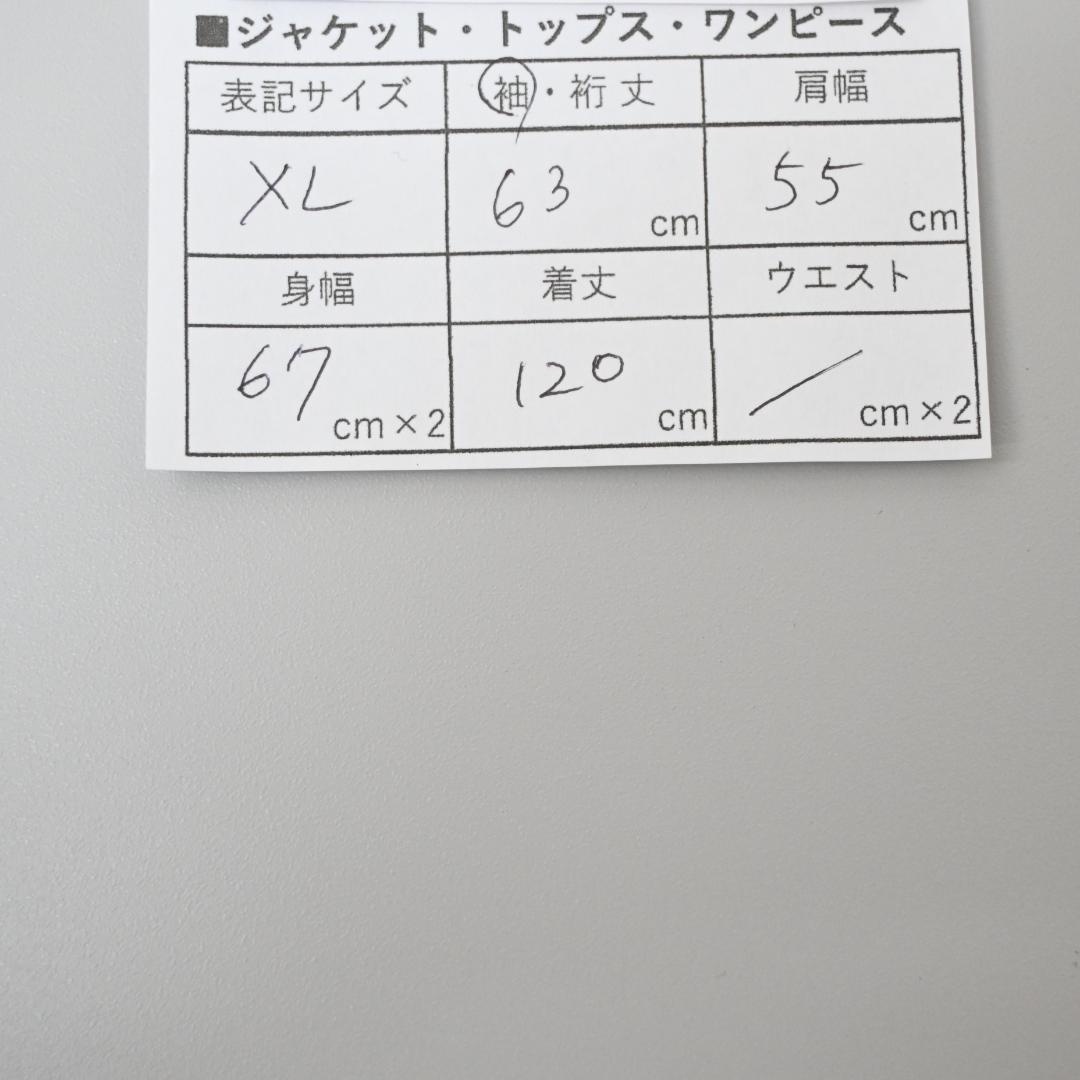 ■ジャケット・トップス・ワンピース
表記サイズ 袖・裄丈 肩幅
XL 63 cm 55 cm
身幅 着丈 ウエスト
67 cm×2 120 cm / cm×2